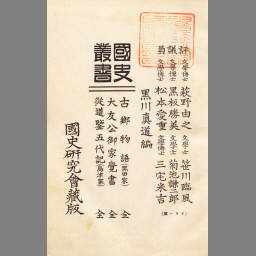 評議員
文學博士 萩野由之 文學士 笹川臨風
文學博士 黒板勝美 文學士 菊池謙二郎
文學博士 松本愛重 文學博士 三宅米吉
(いろは順)
黒川真道編
國史叢書
古郷物語(黒田家) 全
大友公御家覺書 全
從道鑒五代記(島津家) 全
國史研究會藏版